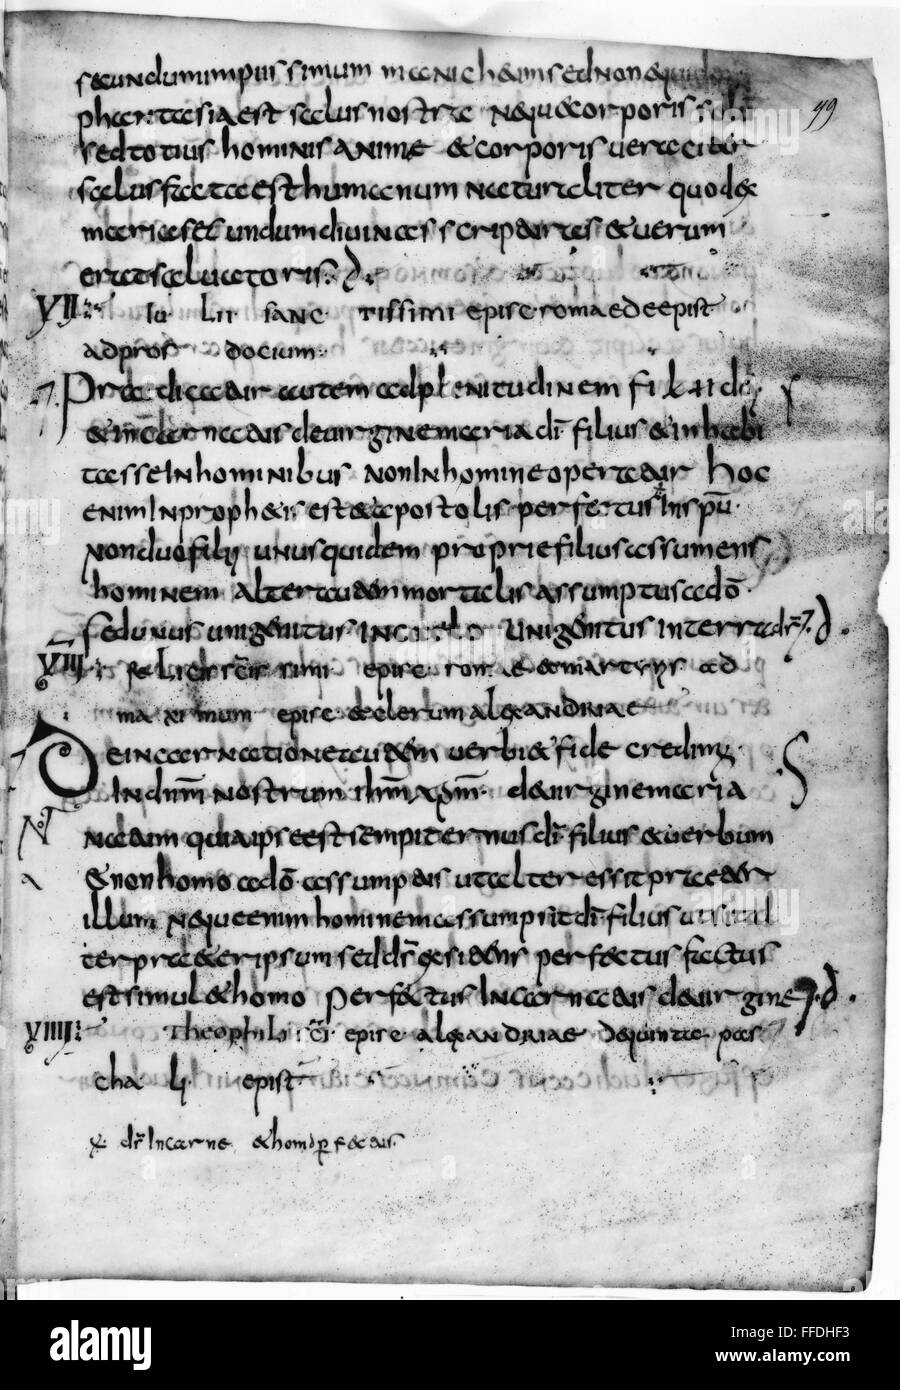 secundum impiissimum manichaei sed non equidem
phantasia est salus nostra neque corporis solum
sed totius hominis anime & corporis veraciter
salus facta est humanum naturaliter quod ex
maria secundum divinas scripturas & verum
erat salvatoris
49
VII Iulii sanctissimi episc romae de epist
ad pros docium
Praedicatur autem ad plenitudinem filii dei
& incarnatus de virgine maria di filius & inhabi
tasse In hominibus non In homine operatur hoc
enim In proph&is est & apostolis perfectus In spu
Non duo filii unus quidem proprie filius assumens
hominem alter autem mortalis assumptus a do
sed unus unigenitus In caelo unigenitus in terra ds
VIII Felicis scissimi episc rom ae & martyris ad
maximum episc & clerum alexandriae
De incarnatione autem verbi & fide credimus
In dnm nostrum ihm xpm de virgine maria
natum quia ipse est sempiternus di filius & verbum
& non homo a do assumptus ut alter essit praeter
illum neque enim hominem assumpsit di filius ut sit al
ter praeter ipsum sed ds existens perfectus factus
est simul & homo perfectus Incarnatus de virgine
VIIII Theophili sci episc alexandriae de quinta pas
chali epist
ds Incarne & homo perfectus
alamy
FFDHF3
www.alamy.com